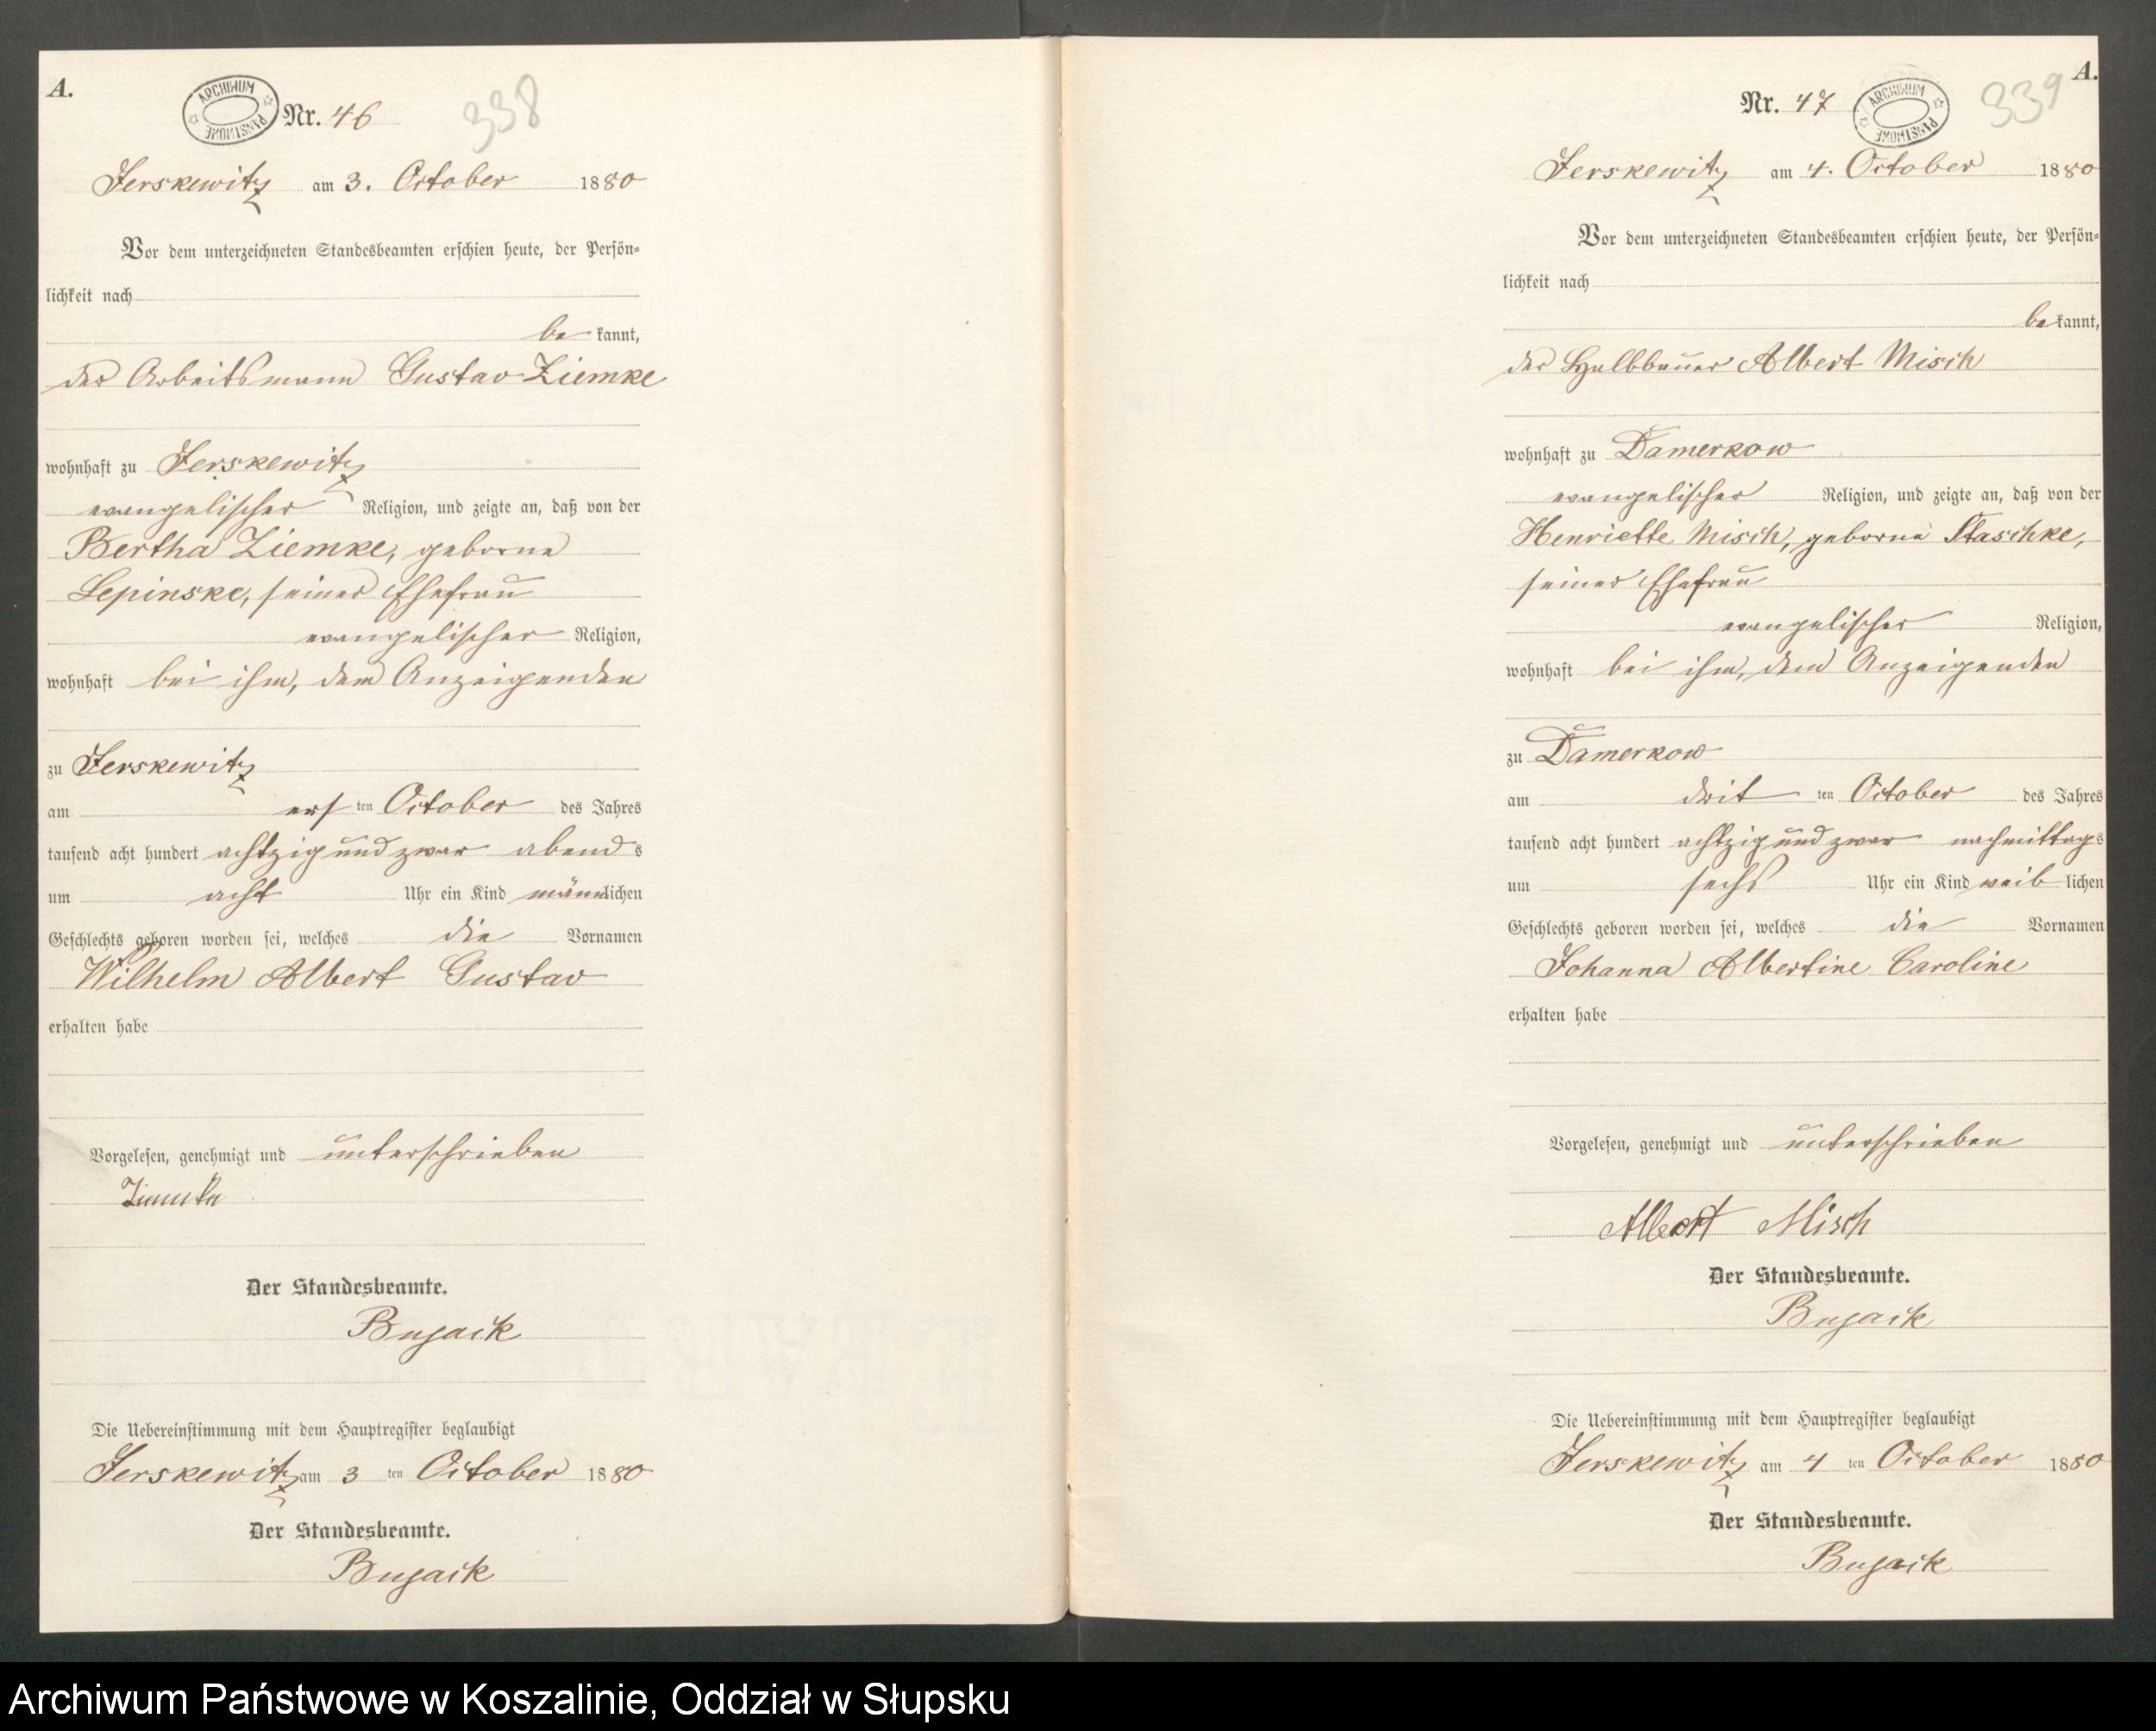 A.
ARCHIWUM PAŃSTWOWE
Nr. 46
338
Jerskewitz am 3. October 1880
Vor dem unterzeichneten Standesbeamten erschien heute, der Persön-
lichkeit nach
be kannt,
der Arbeitsmann Gustav Ziemke
wohnhaft zu Jerskewitz
evangelischer Religion, und zeigte an, daß von der
Bertha Ziemke, geborne
Lepinske, seiner Ehefrau
evangelischer Religion,
wohnhaft bei ihm, dem Anzeigenden
zu Jerskewitz
am ers ten October des Jahres
tausend acht hundert achtzig und zwar abend s
um acht Uhr ein Kind männlichen
Geschlechts geboren worden sei, welches die Vornamen
Wilhelm Albert Gustav
erhalten habe
Vorgelesen, genehmigt und unterschrieben
Ziemke
Der Standesbeamte.
Bujack
Die Uebereinstimmung mit dem Hauptregister beglaubigt
Jerskewitz am 3 ten October 1880
Der Standesbeamte.
Bujack
A.
Nr. 47
ARCHIWUM PAŃSTWOWE
339
Jerskewitz am 4. October 1880
Vor dem unterzeichneten Standesbeamten erschien heute, der Persön-
lichkeit nach
be kannt,
der Halbbauer Albert Misch
wohnhaft zu Damerkow
evangelischer Religion, und zeigte an, daß von der
Henriette Misch, geborne Staschke,
seiner Ehefrau
evangelischer Religion,
wohnhaft bei ihm, dem Anzeigenden
zu Damerkow
am drit ten October des Jahres
tausend acht hundert achtzig und zwar nachmittag s
um sechs Uhr ein Kind weib lichen
Geschlechts geboren worden sei, welches die Vornamen
Johanna Albertine Caroline
erhalten habe
Vorgelesen, genehmigt und unterschrieben
Albert Misch
Der Standesbeamte.
Bujack
Die Uebereinstimmung mit dem Hauptregister beglaubigt
Jerskewitz am 4 ten October 1880
Der Standesbeamte.
Bujack
Archiwum Państwowe w Koszalinie, Oddział w Słupsku